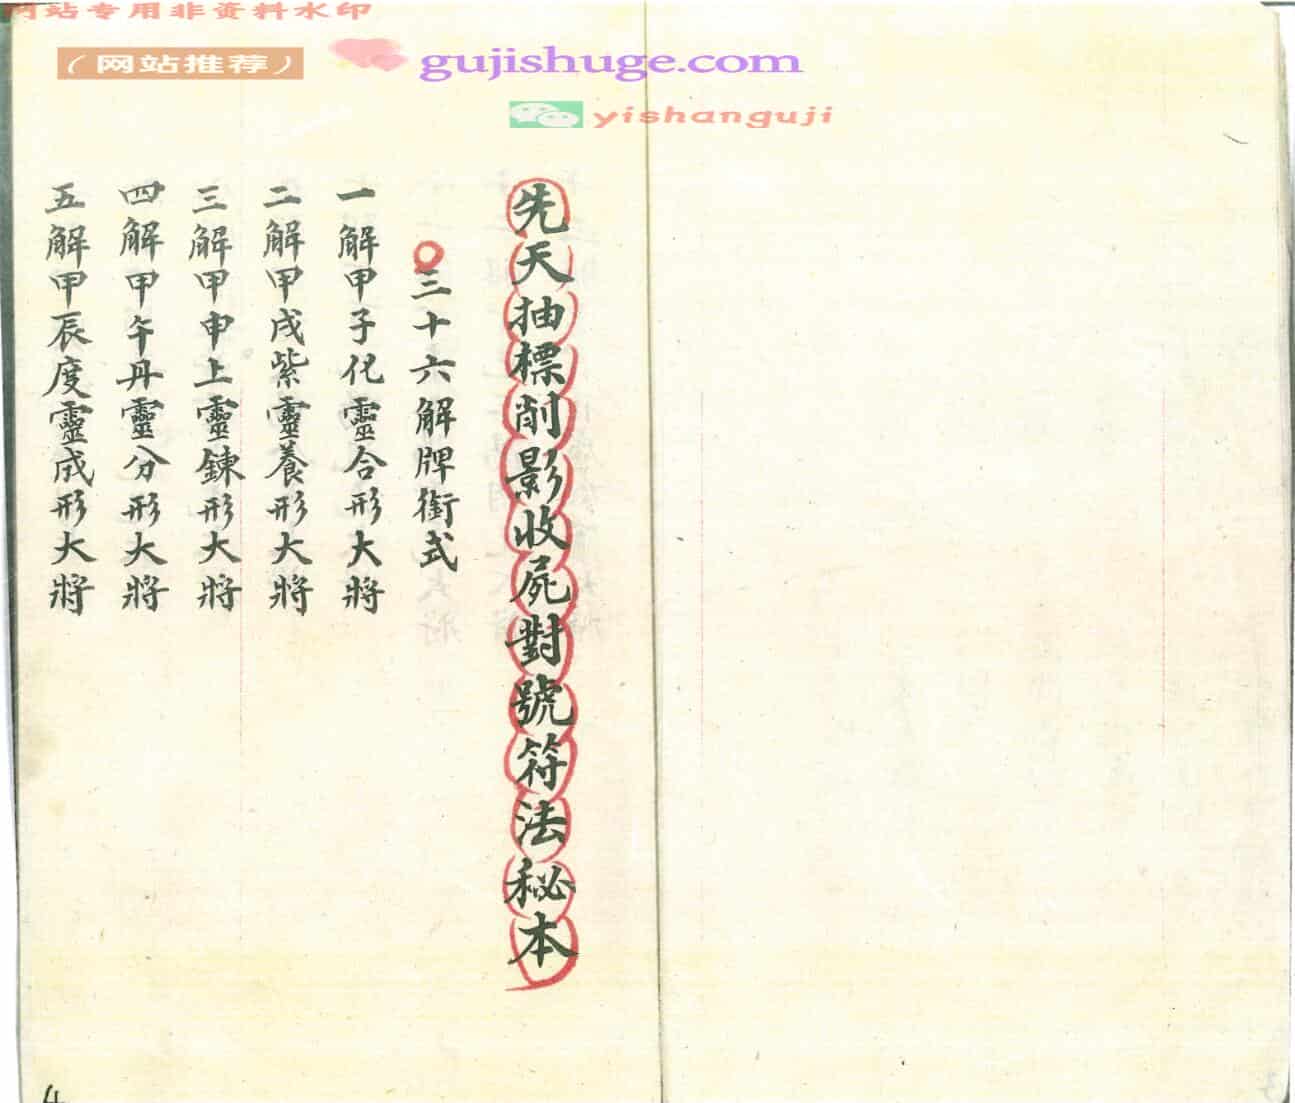 网站专用非资料水印
（网站推荐）
gujishuge.com
yishanguji
先天抽標削影收屍對號符法秘本
三十六解牌銜式
一解甲子化靈合形大將
二解甲戌紫靈養形大將
三解甲申上靈鍊形大將
四解甲午丹靈分形大將
五解甲辰度靈成形大將